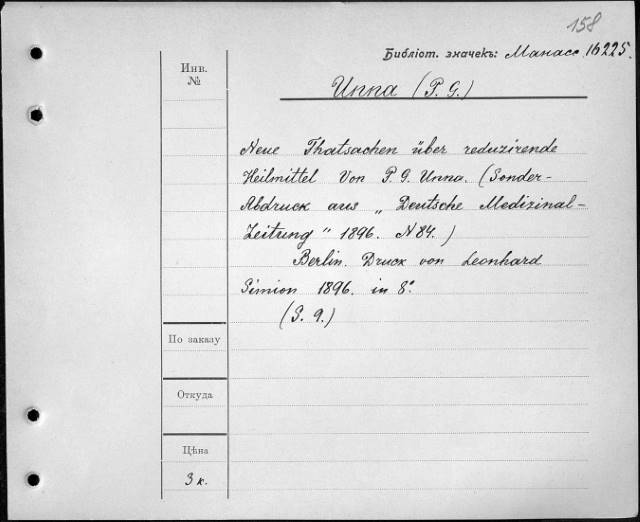 158
Библіот. значекъ: Манасс. 16225.
Инв.
№
Unna (P. G.)
Neue Thatsachen über reduzirende
Heilmittel Von P. G. Unna. (Sonder-
Abdruck aus „Deutsche Medizinal-
Zeitung" 1896. N 84.)
Berlin. Druck von Leonhard
Simion 1896. in 8°.
(S. 9.)
По заказу
Откуда
Цѣна
3 к.